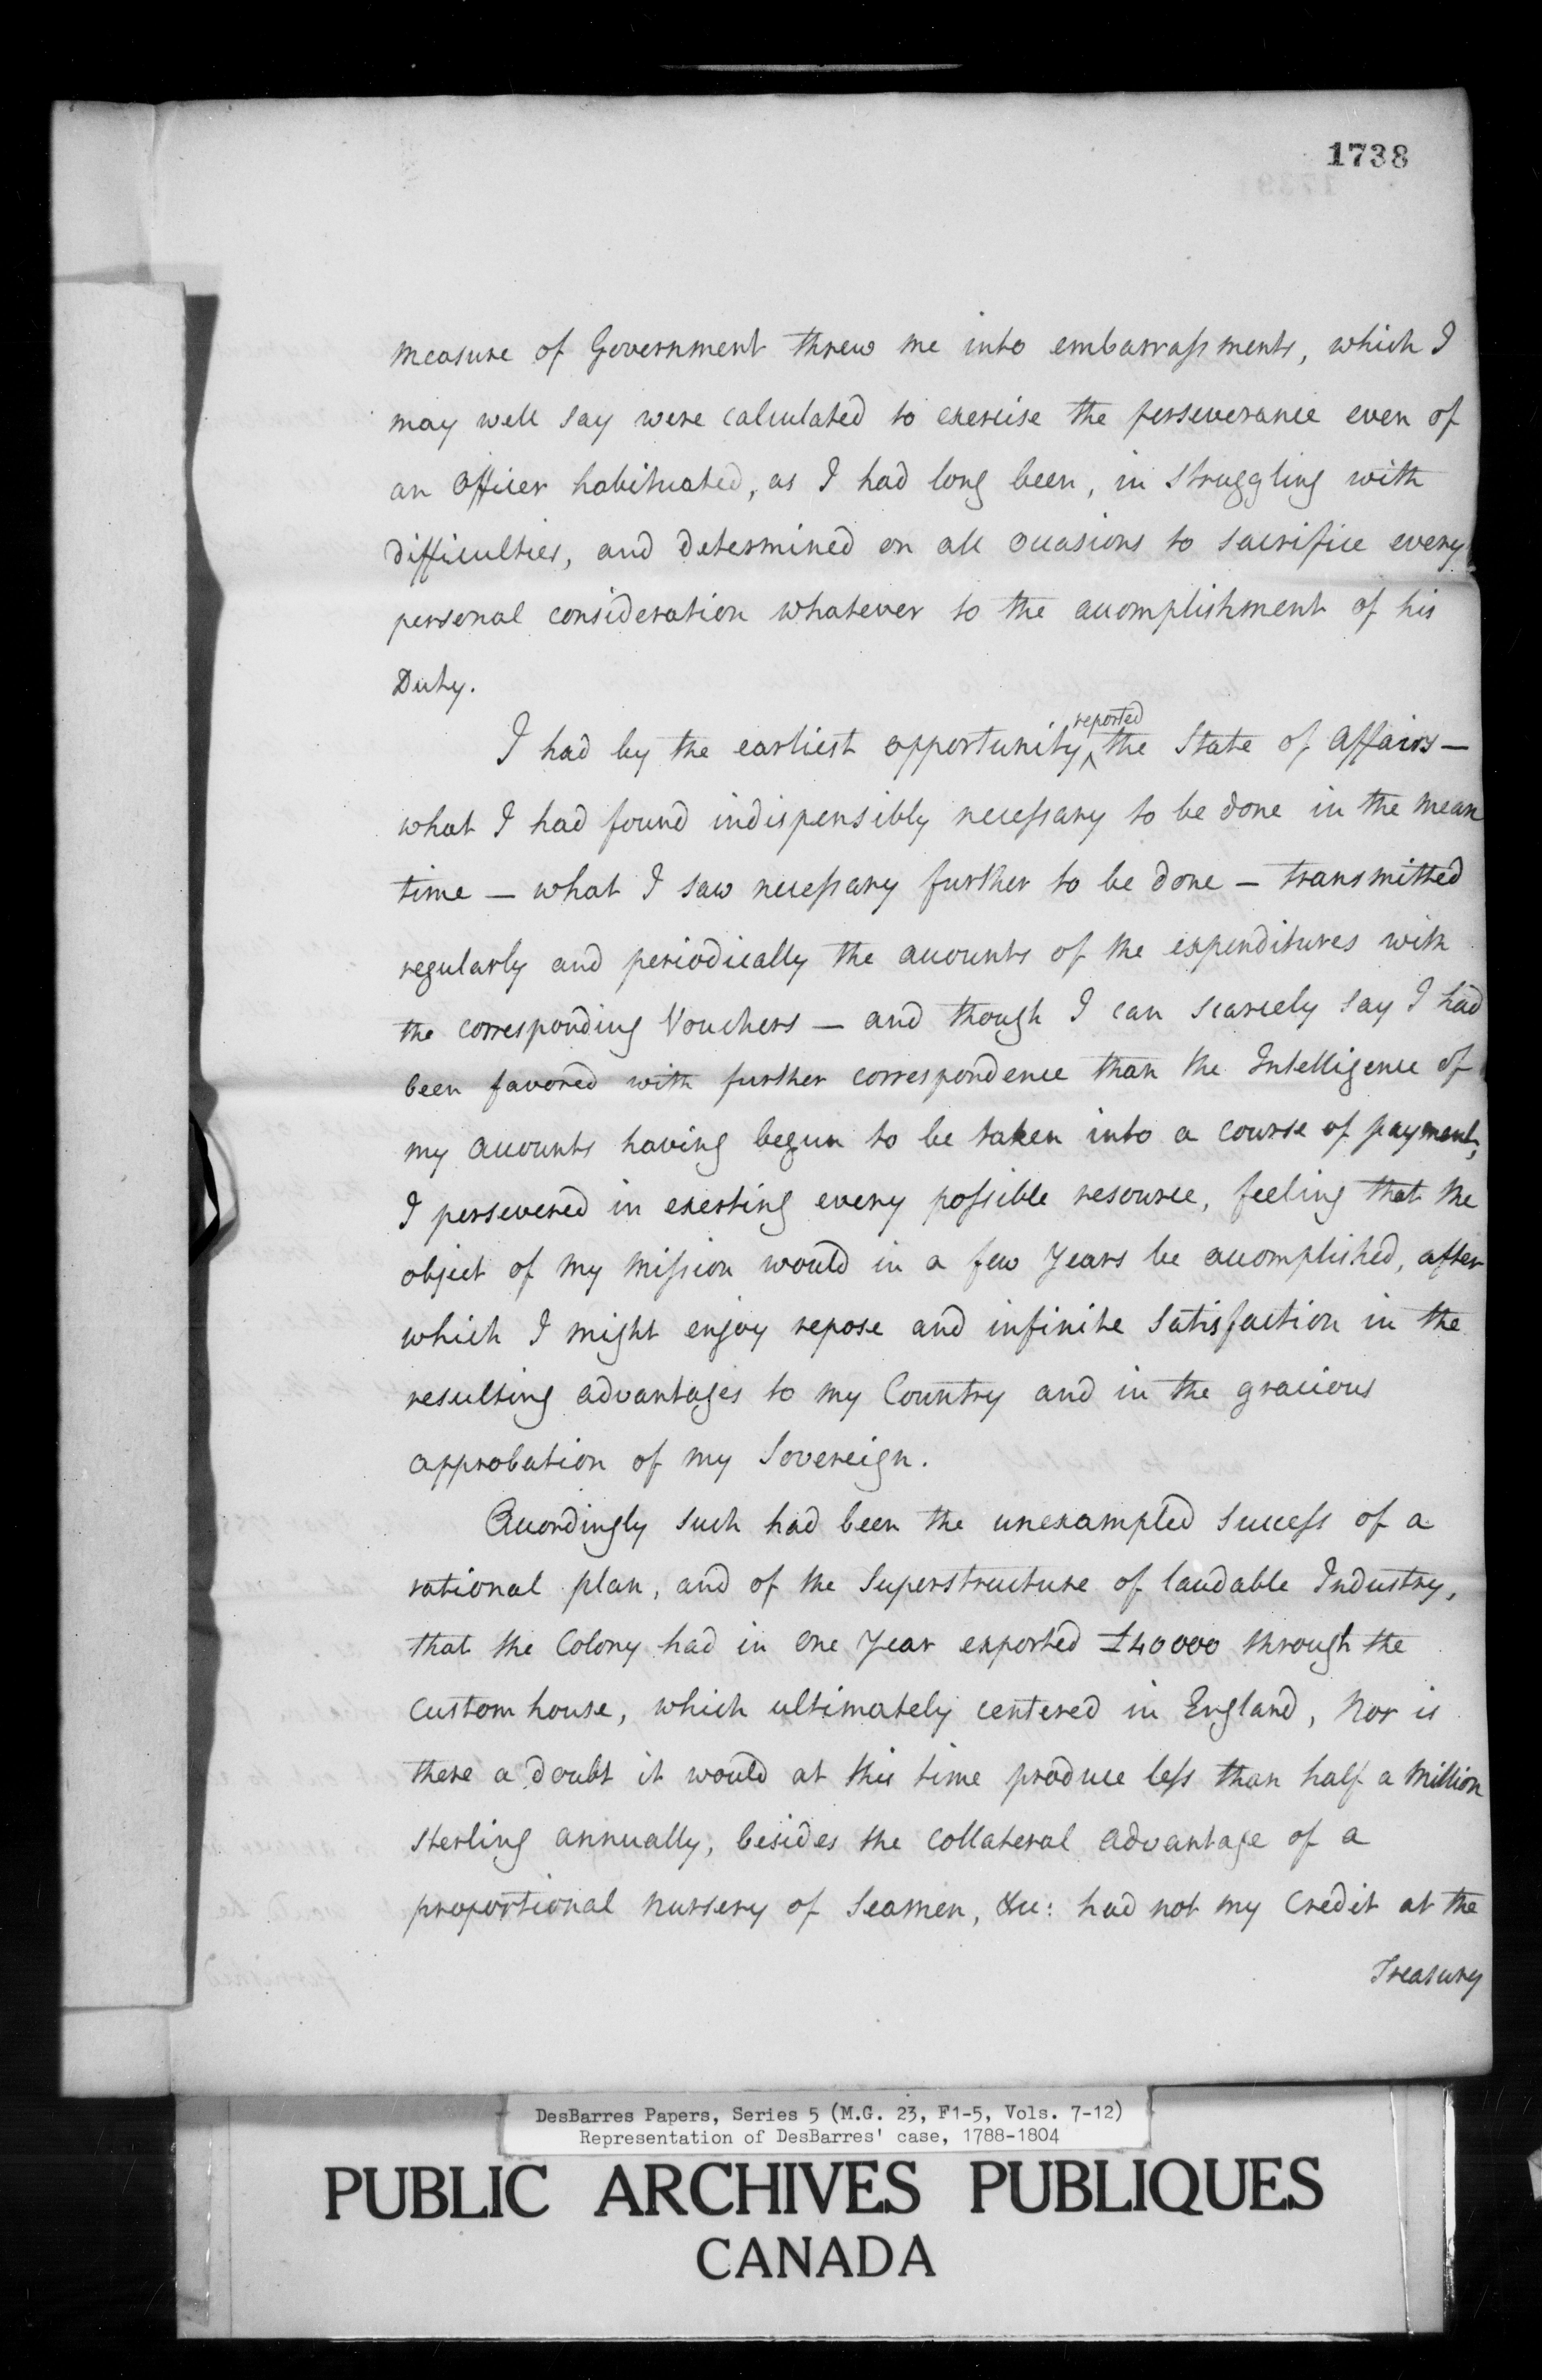 1738
measure of Government threw me into embarraſsments, which I
may well say were calculated to exercise the perseverance even of
an Officer habituated, as I had long been, in struggling with
difficulties, and determined on all occasions to sacrifice every
personal consideration whatever to the accomplishment of his
Duty.
I had by the earliest opportunity ^reported the State of Affairs —
what I had found indispensibly neceſsary to be done in the mean
time — what I saw neceſsary further to be done — transmitted
regularly and periodically the accounts of the expenditures with
the corresponding Vouchers — and though I can scarcely say I had
been favored with further correspondence than the Intelligence of
my accounts having begun to be taken into a course of payment,
I persevered in exerting every poſsible resource, feeling that the
object of my Miſsion would in a few Years be accomplished, after
which I might enjoy repose and infinite Satisfaction in the
resulting advantages to my Country and in the gracious
approbation of my Sovereign.
Accordingly such had been the unexampled Succeſs of a
rational plan, and of the Superstructure of laudable Industry,
that the Colony had in one Year exported £40000 through the
Custom house, which ultimately centered in England, Nor is
there a doubt it would at this time produce leſs than half a Million
Sterling annually, besides the Collateral advantage of a
proportional Nursery of Seamen, &c: had not my Credit at the
Treasury
DesBarres Papers, Series 5 (M.G. 23, F1-5, Vols. 7-12)
Representation of DesBarres' case, 1788-1804
PUBLIC ARCHIVES PUBLIQUES
CANADA